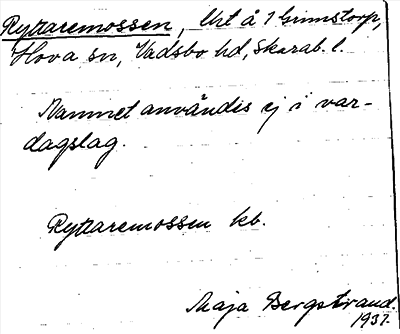 Ryttaremossen, Urt å 1 Grimstorp,
Hova sn, Vadsbo hd, Skarab. l.
Namnet användes ej i var-
dagslag.
Ryttaremossen kb.
Maja Bergstrand.
1937.